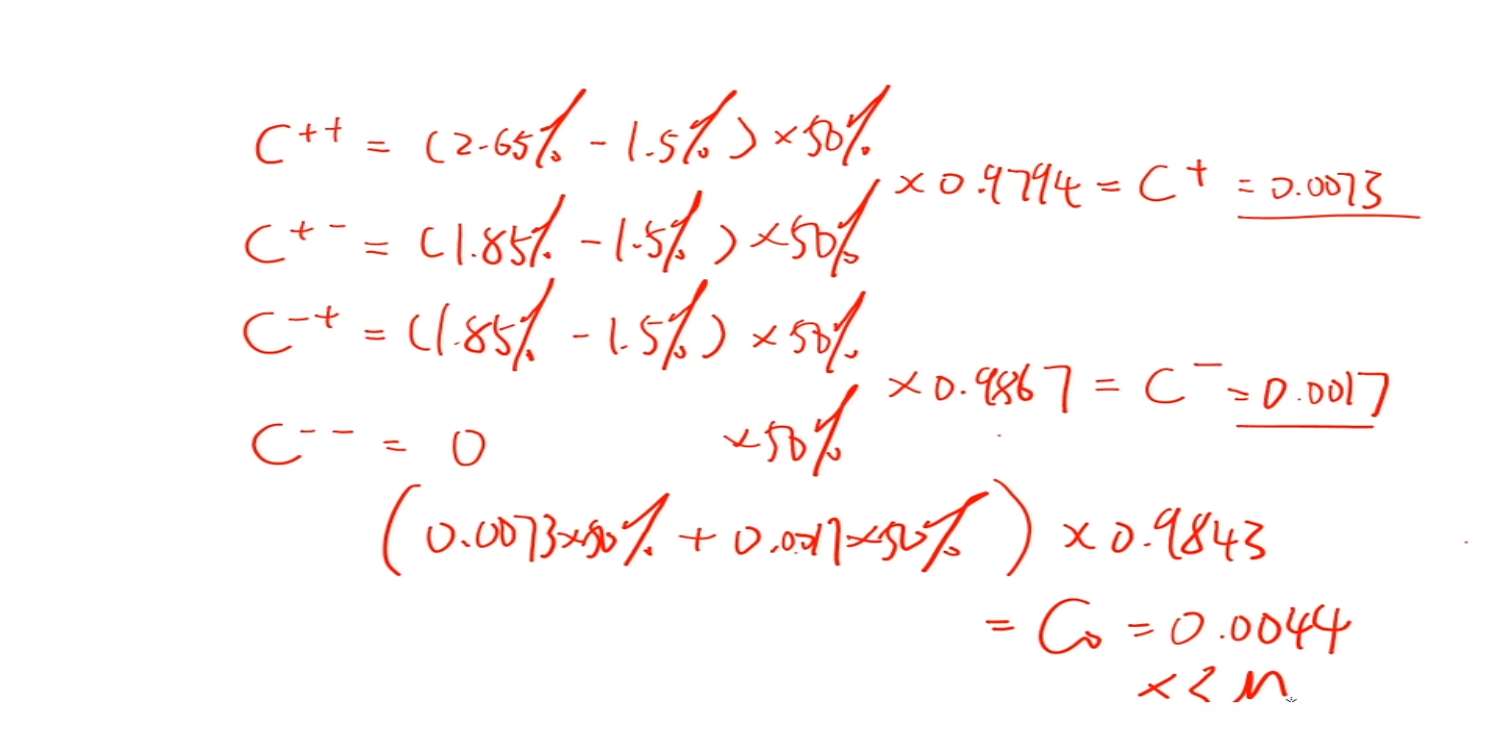 C++ = (2.65% - 1.5%) ×50%
×0.9794 = C+ = 0.0073
C+- = (1.85% - 1.5%) ×50%
C-+ = (1.85% - 1.5%) ×50%
×0.9867 = C- = 0.0017
C-- = 0 ×50%
(0.0073×50% + 0.0017×50%) ×0.9843
= C0 = 0.0044
×2M